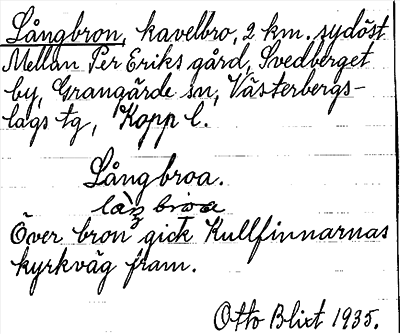 Långbron, kavelbro, 2 km. sydöst
Mellan Per Eriks gård, Svedberget
by, Grangärde sn, Västerbergs-
lags tg, Kopp l.
Långbroa.
Över bron gick Kullfinnarnas
kyrkväg fram.
Otto Blixt 1935.